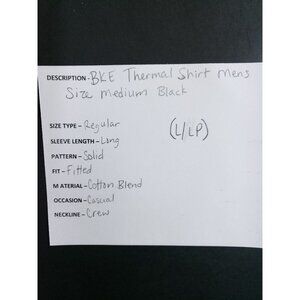 DESCRIPTION - BKE Thermal Shirt Mens
Size Medium Black
SIZE TYPE - Regular
(L/LP)
SLEEVE LENGTH - Long
PATTERN - Solid
FIT - Fitted
M ATERIAL - Cotton Blend
OCCASION - Casual
NECKLINE - Crew